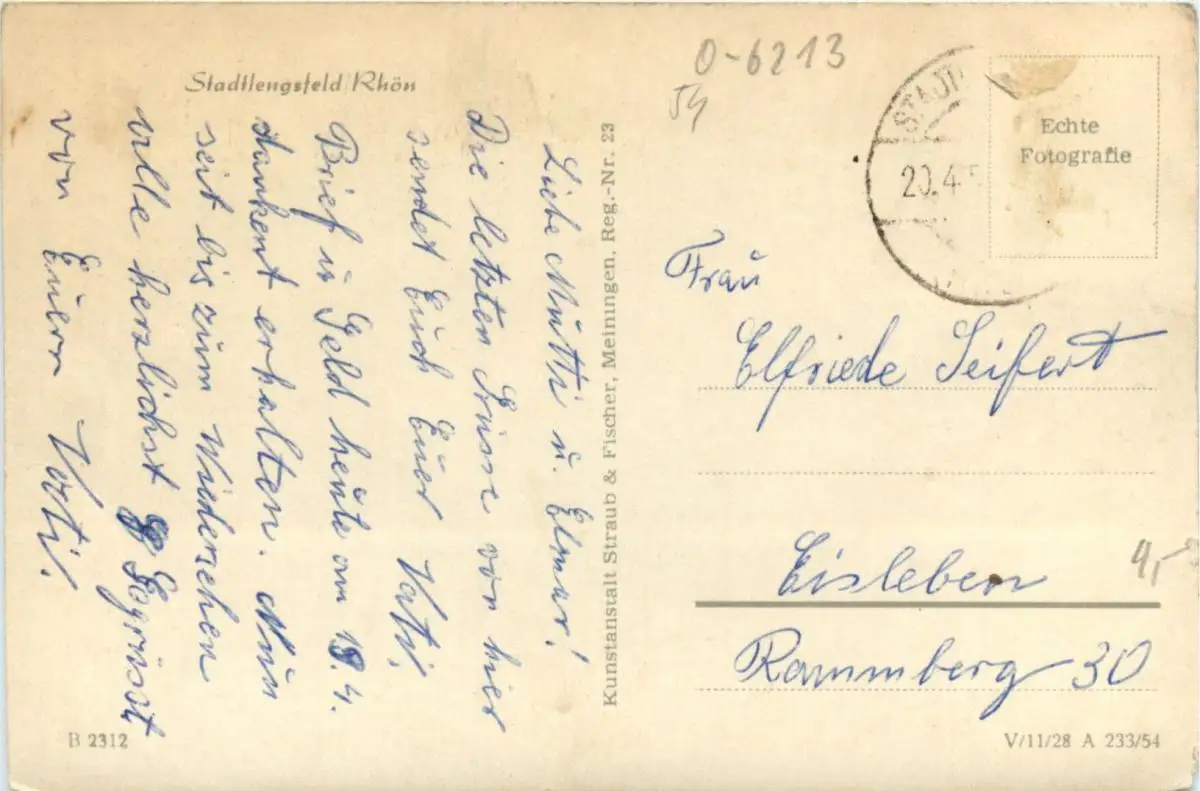 Stadtlengsfeld/Rhön
Liebe Mutti u. Elmar!
Die letzten Grüsse von hier
sendet Euch Euer Vati.
Brief u Geld heute am 19.4.
dankent erhalten. Nun
seit bis zum Wiedersehen
alle herzlichst Begrüsst
von Euern Vati.
Kunstanstalt Straub & Fischer, Meiningen, Reg.-Nr. 23
0-6213
20.4.5
Echte
Fotografie
Frau
Elfriede Seifert
Eisleben
4,-
Rammberg 30
B 2312
V/11/28 A 233/54